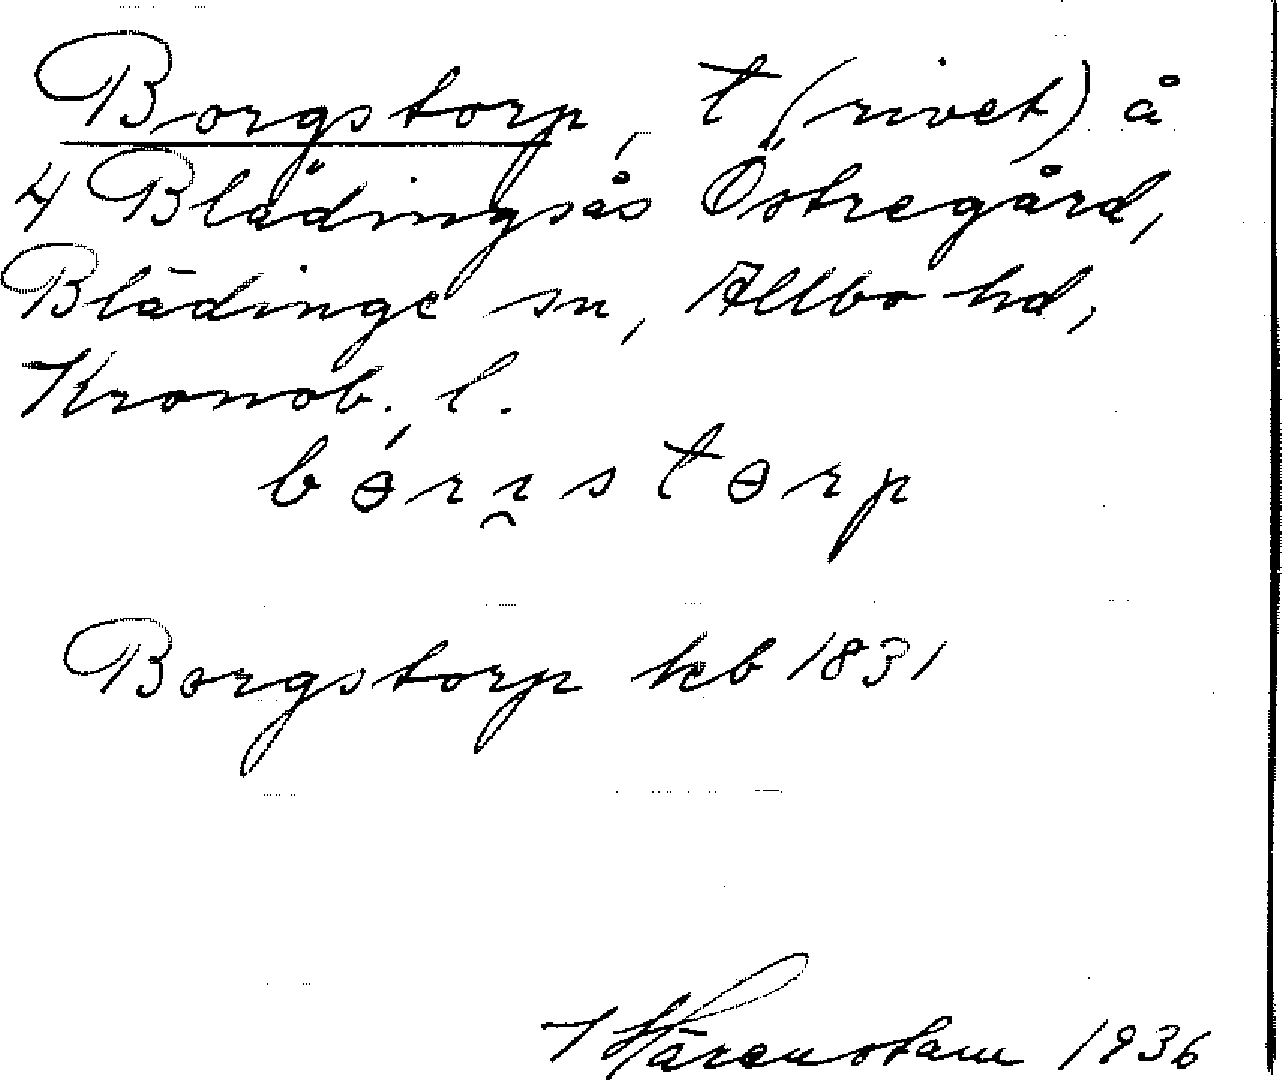 Borgstorp, t (rivet) å
4 Blädingsås Östregård,
Blädinge sn, Allbo hd,
Kronob. l.
Borgstorp kb 1831
1936